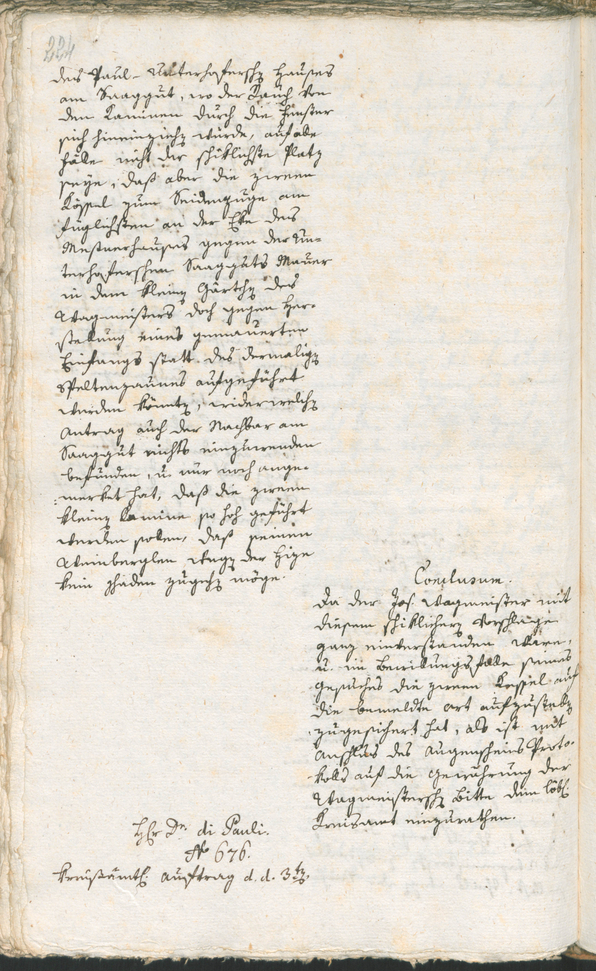 224
des Paul-Unterhoferschen Hauses
am Saaggut, wo der Rauch von
den Kaminen durch die Fenster
sich hineinziehen würde, auf alle
Fälle nicht der schiklichste Platz
seye, daß aber die zween
Kössel zum Seidenzuge am
füglichsten an der Eke des
Messnerhauses gegen der Un-
terhoferschen Saagguts Mauer
in dem kleinen Gärtchen des
Wagmeisters doch gegen Her-
stellung eines gemauerten
Einfangs statt des dermaligen
Speltenzaunes aufgeführt
werden könnten, wider welchen
Antrag auch der Nachbar am
Saaggut nichts einzuwenden
befunden, u. nur noch ange-
merket hat, daß die zween
kleinen Kamine so hoch geführt
werden sollen, daß seinen
Weinberglen wegen der Hize
kein Schaden zugehen möge.
Conclusum.
Da der Jos. Wagmeister mit
diesem schiklichern Vorschlage
ganz einverstanden wäre,
u. im Bewilligungsfalle seines
Gesuches die zween Kessel auf
die bemeldte Art aufzustellen
zugesichert hat, als ist mit
Anschluß des Augenscheins Proto-
kolls auf die Gewährung der
Wagmeisterschen Bitte dem löbl.
Kreisamt einzurathen.
Hr Dr. di Pauli.
No 676.
Kreisamtl. Auftrag d. d. 3ten